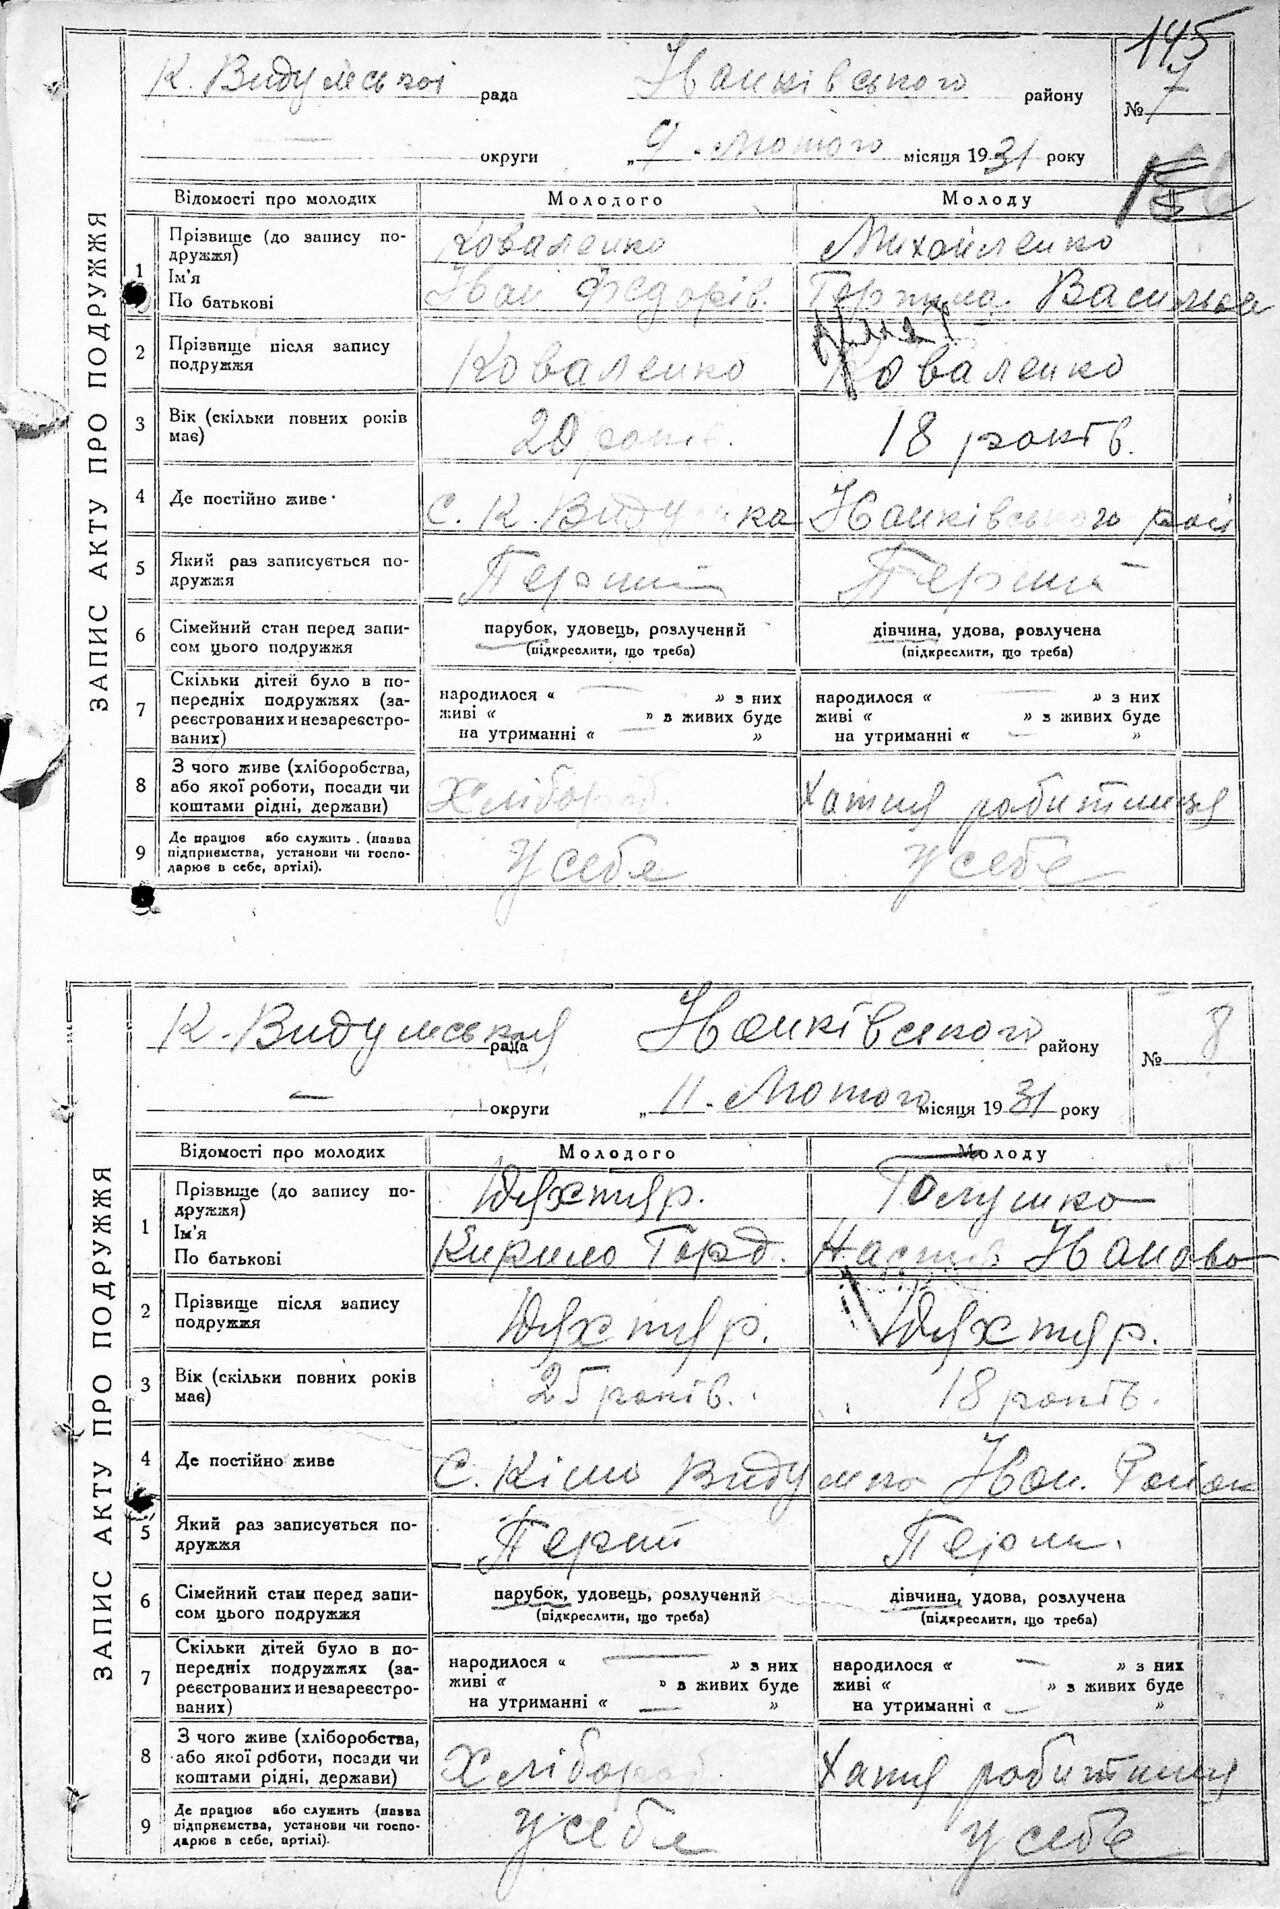 145
К. Видумської рада Іванківського району № 7
— округи „ 9 - Лютого місяця 1931 року
ЗАПИС АКТУ ПРО ПОДРУЖЖЯ
Відомості про молодих Молодого Молоду
1 Прізвище (до запису по- Коваленко Михайленко
дружжя)
Ім'я Іван Федорів. Василів
По батькові
2 Прізвище після запису Коваленко Коваленко
подружжя
3 Вік (скільки повних років 20 років. 18 років.
має)
4 Де постійно живе С. К. Видумка Іванківського рай
5 Який раз записується по- Перший Перший
дружжя
6 Сімейний стан перед запи- парубок, удовець, розлучений дівчина, удова, розлучена
сом цього подружжя (підкреслити, що треба) (підкреслити, що треба)
7 Скільки дітей було в по- народилося « — » з них народилося « — » з них
передніх подружжях (за- живі « » в живих буде живі « » з живих буде
реєстрованих и незареєстро- на утриманні « — » на утриманні « — »
ваних)
8 З чого живе (хліборобства, Хлібороб. Хатня робитниця
або якої роботи, посади чи
коштами рідні, держави)
9 Де працює або служить . (назва у себе у себе
підприємства, установи чи госпо-
дарює в себе, артілі).
К. Видумська рада Іванківського району № 8
— округи „ 11 - Лютого місяця 1931 року
ЗАПИС АКТУ ПРО ПОДРУЖЖЯ
Відомості про молодих Молодого Молоду
1 Прізвище (до запису по- Дяхтяр. Галушко
дружжя)
Ім'я Кирило Горд. Настя Іванова
По батькові
2 Прізвище після запису Дяхтяр. Дяхтяр.
подружжя
3 Вік (скільки повних років 25 років. 18 років.
має)
4 Де постійно живе С. Кімо Видумка Іван. Район
5 Який раз записується по- Перши Перши.
дружжя
6 Сімейний стан перед запи- парубок, удовець, розлучений дівчина, удова, розлучена
сом цього подружжя (підкреслити, що треба) (підкреслити, що треба)
7 Скільки дітей було в по- народилося « — » з них народилося « — » з них
передніх подружжях (за- живі « » в живих буде живі « » з живих буде
реєстрованих и незареєстро- на утриманні « — » на утриманні « — »
ваних)
8 З чого живе (хліборобства, Хлібороб. Хатня робитниця
або якої роботи, посади чи
коштами рідні, держави)
9 Де працює або служить (назва у себе у себе
підприємства, установи чи госпо-
дарює в себе, артілі).